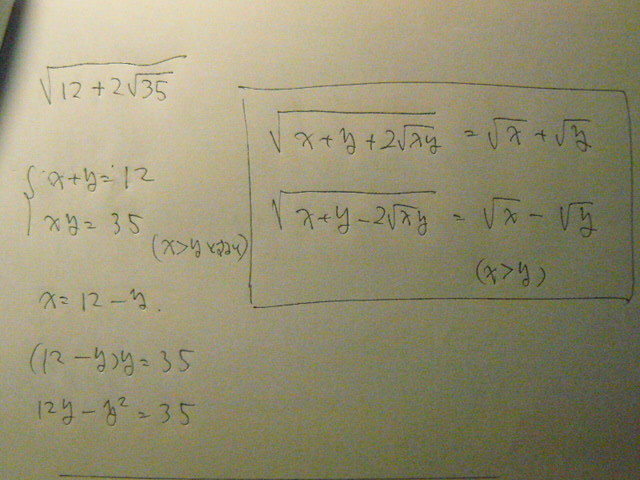 √(12+2√35)
{ x+y=12
xy=35
(x>y
x=12-y.
(12-y)y=35
12y-y²=35
√(x+y+2√xy) = √x+√y
√(x+y-2√xy) = √x-√y
(x>y)